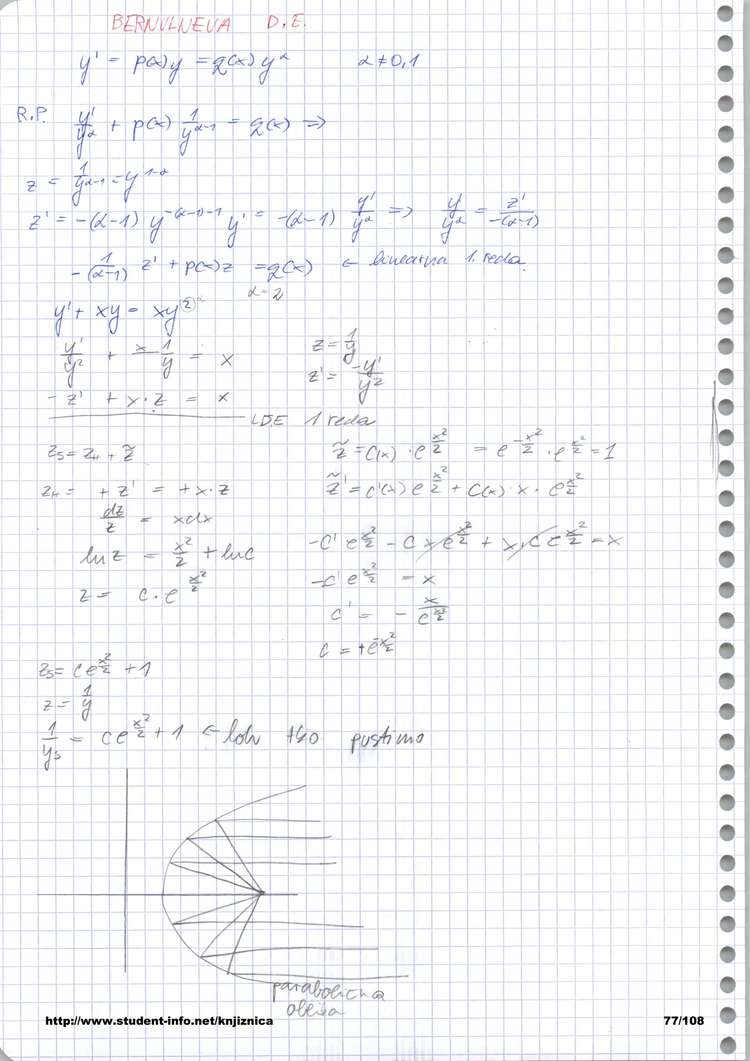 BERNULNEVA D.E.
y' = p(x)y = q(x) y^α α ≠ 0,1
R.P. y'/y^α + p(x) 1/y^(α-1) = q(x) ⇒
z = 1/y^(α-1) = y^(1-α)
z' = -(α-1) y^(-(α-1)-1) y' = -(α-1) y'/y^α ⇒ y'/y^α = z'/-(α-1)
-1/(α-1) z' + p(x)z = q(x) ← linearna 1. reda
α=2
y' + xy = xy^2
y'/y^2 + x 1/y = x
z = 1/y
z' = -y'/y^2
- z' + x·z = x
LDE 1 reda
z_S = z_H + z̃
z_H = + z' = + x·z
dz/z = x dx
ln z = x^2/2 + ln c
z = c · e^(x^2/2)
z̃ = c(x) · e^(x^2/2) = e^(-x^2/2) · e^(x^2/2) = 1
z̃' = c'(x) e^(x^2/2) + c(x) · x · e^(x^2/2)
-c' e^(x^2/2) - c x e^(x^2/2) + x · c e^(x^2/2) = x
-c' e^(x^2/2) = x
c' = - x/e^(x^2/2)
c = + e^(-x^2/2)
z_S = c e^(x^2/2) + 1
z = 1/y
1/y_S = c e^(x^2/2) + 1 ← lohk tko pustimo
parabolična
http://www.student-info.net/knjiznica 77/108